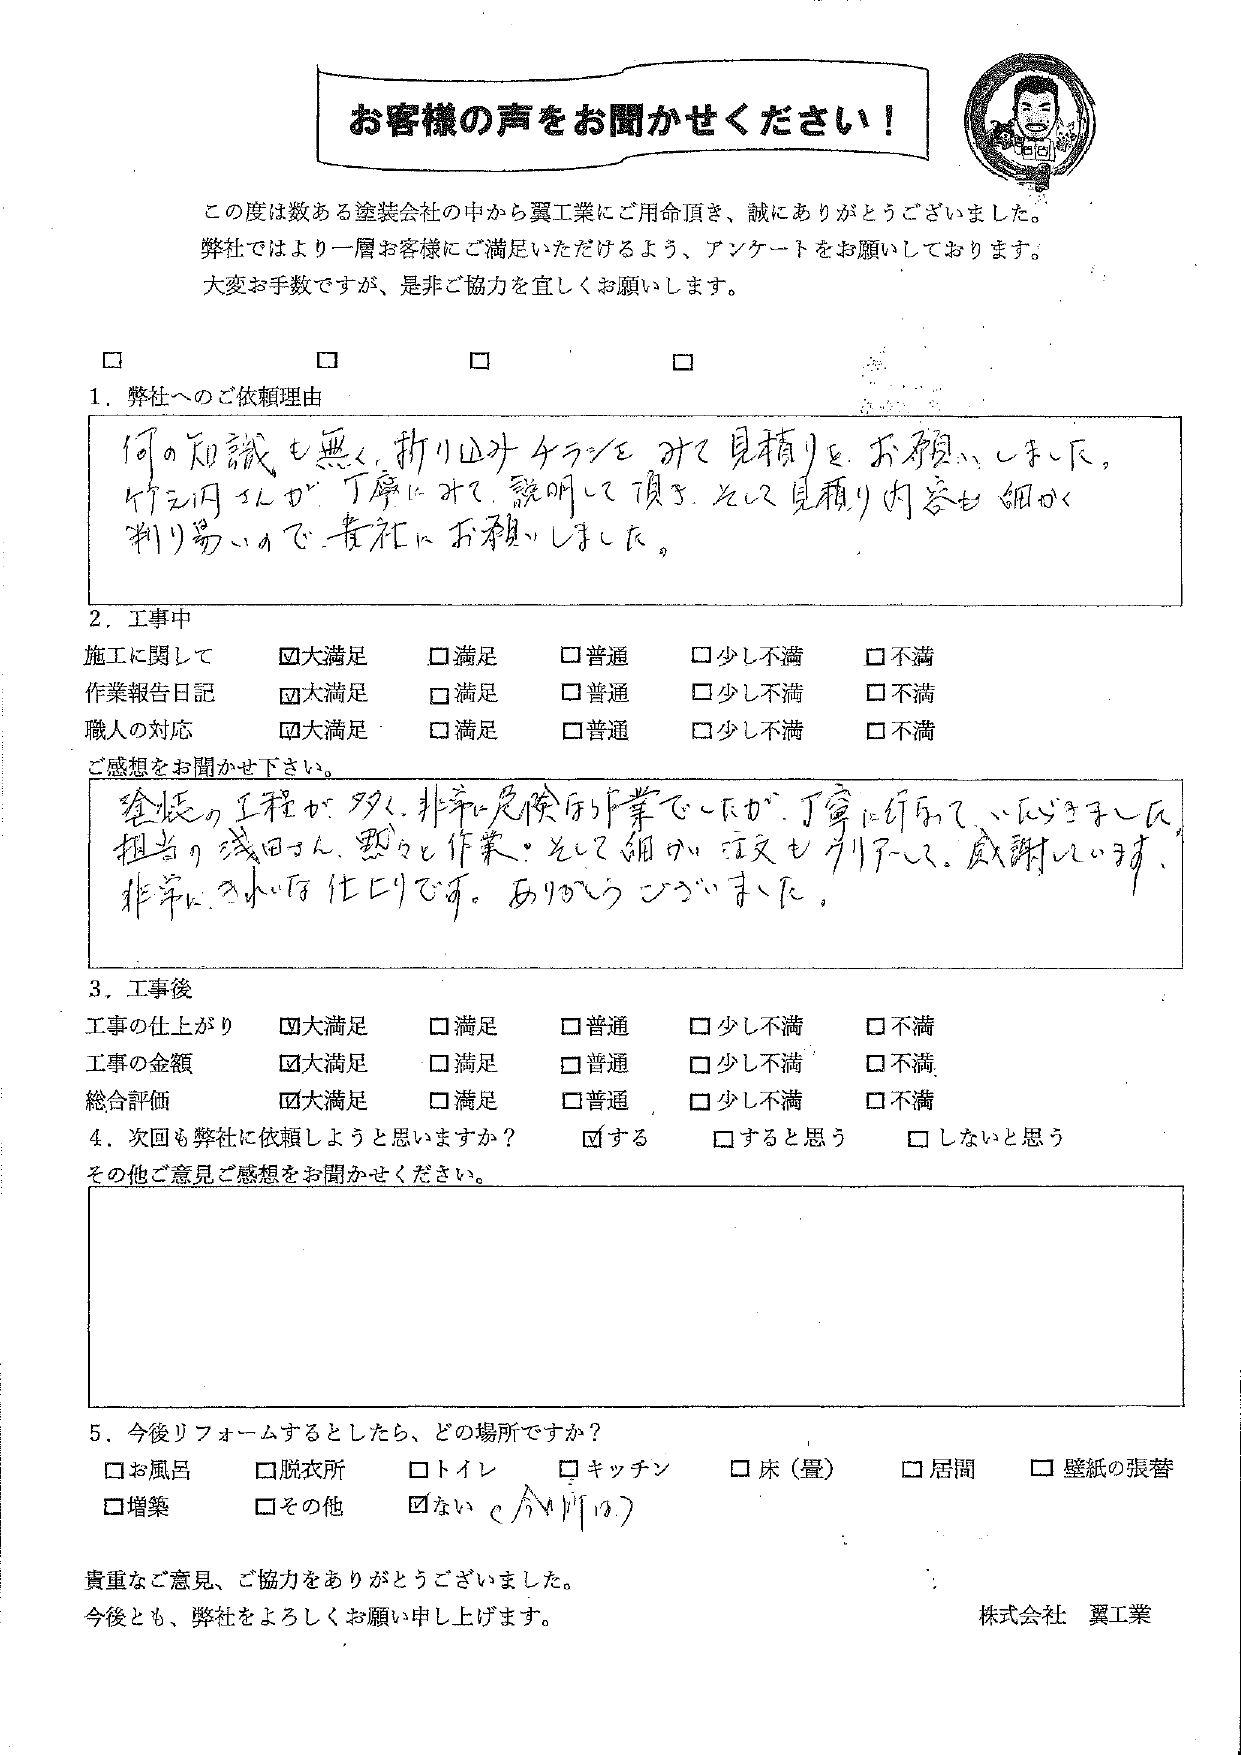 お客様の声をお聞かせください！
この度は数ある塗装会社の中から翼工業にご用命頂き、誠にありがとうございました。
弊社ではより一層お客様にご満足いただけるよう、アンケートをお願いしております。
大変お手数ですが、是非ご協力を宜しくお願いします。
□ □ □ □
1．弊社へのご依頼理由
何の知識も無く、折り込みチラシをみて見積りを、お願いしました。
さんが丁寧にみて、説明して頂き、そして見積り内容も細かく
判り易いので、貴社にお願いしました。
2．工事中
施工に関して ☑大満足 □満足 □普通 □少し不満 □不満
作業報告日記 ☑大満足 □満足 □普通 □少し不満 □不満
職人の対応 ☑大満足 □満足 □普通 □少し不満 □不満
ご感想をお聞かせ下さい。
塗装の工程が多く、非常に危険な作業でしたが、丁寧に行なって、いただきました。
担当の浅田さん、黙々と作業。そして細かい注文もクリアーして。感謝しています、
非常に、きれいな仕上りです。ありがとうございました。
3．工事後
工事の仕上がり ☑大満足 □満足 □普通 □少し不満 □不満
工事の金額 ☑大満足 □満足 □普通 □少し不満 □不満
総合評価 ☑大満足 □満足 □普通 □少し不満 □不満
4．次回も弊社に依頼しようと思いますか？ ☑する □すると思う □しないと思う
その他ご意見ご感想をお聞かせください。
5．今後リフォームするとしたら、どの場所ですか？
□お風呂 □脱衣所 □トイレ □キッチン □床（畳） □居間 □壁紙の張替
□増築 □その他 ☑ない（今の所は）
貴重なご意見、ご協力をありがとうございました。
今後とも、弊社をよろしくお願い申し上げます。 株式会社　翼工業